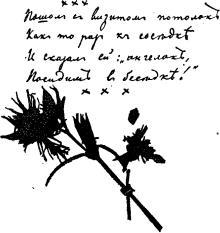 × × ×
Пошолъ съ визитомъ потолокъ
Какъ то разъ къ сосѣдкѣ
И сказалъ ей: „ангелокъ,
Посидимъ въ бесѣдкѣ!“
× × ×